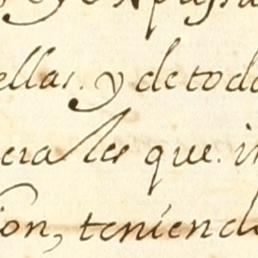 ellas. y de todo
era les que. i
ion, teniend